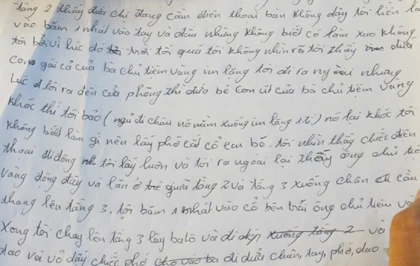 tầng 2 thấy đứa chị đang cầm điện thoai bàn không dây tôi liền
vác băm 1 nhát vào tay và đầu nhưng không biết có làm sao không
tôi bởi vì lúc do trời tối quá tôi không nhìn rõ tôi thấy đứa
con gái cả của bà chủ tiệm vàng im lặng tôi đi ra ngoài nhưng
lúc tôi ra đến cửa phòng thì đứa bé con út của bà chủ tiệm vàng
khóc thì tôi bảo ( ngủ đi cháu nó nằm xuống im lặng 1 tí ) nó lại khóc tôi
không biết làm gì nên lấy phớ cứ cổ em bé. tôi nhìn thấy chiếc điện
thoai di động tôi lấy luôn và tôi ra ngoài lại thấy ông chủ tiệ
vàng động đậy và lăn ở giữa tầng 2 và tầng 3 xuống chân cầu
thang lên tầng 3. tôi băm 1 nhát vào cổ bên phải ông chủ tiệm và
xong tôi chạy lên tầng 3 lấy balô và đi dép xuống tầng 2 và
dao và vỏ đây chiếc phớ cho vào ba đi dưới chân, tay, phớ, dao